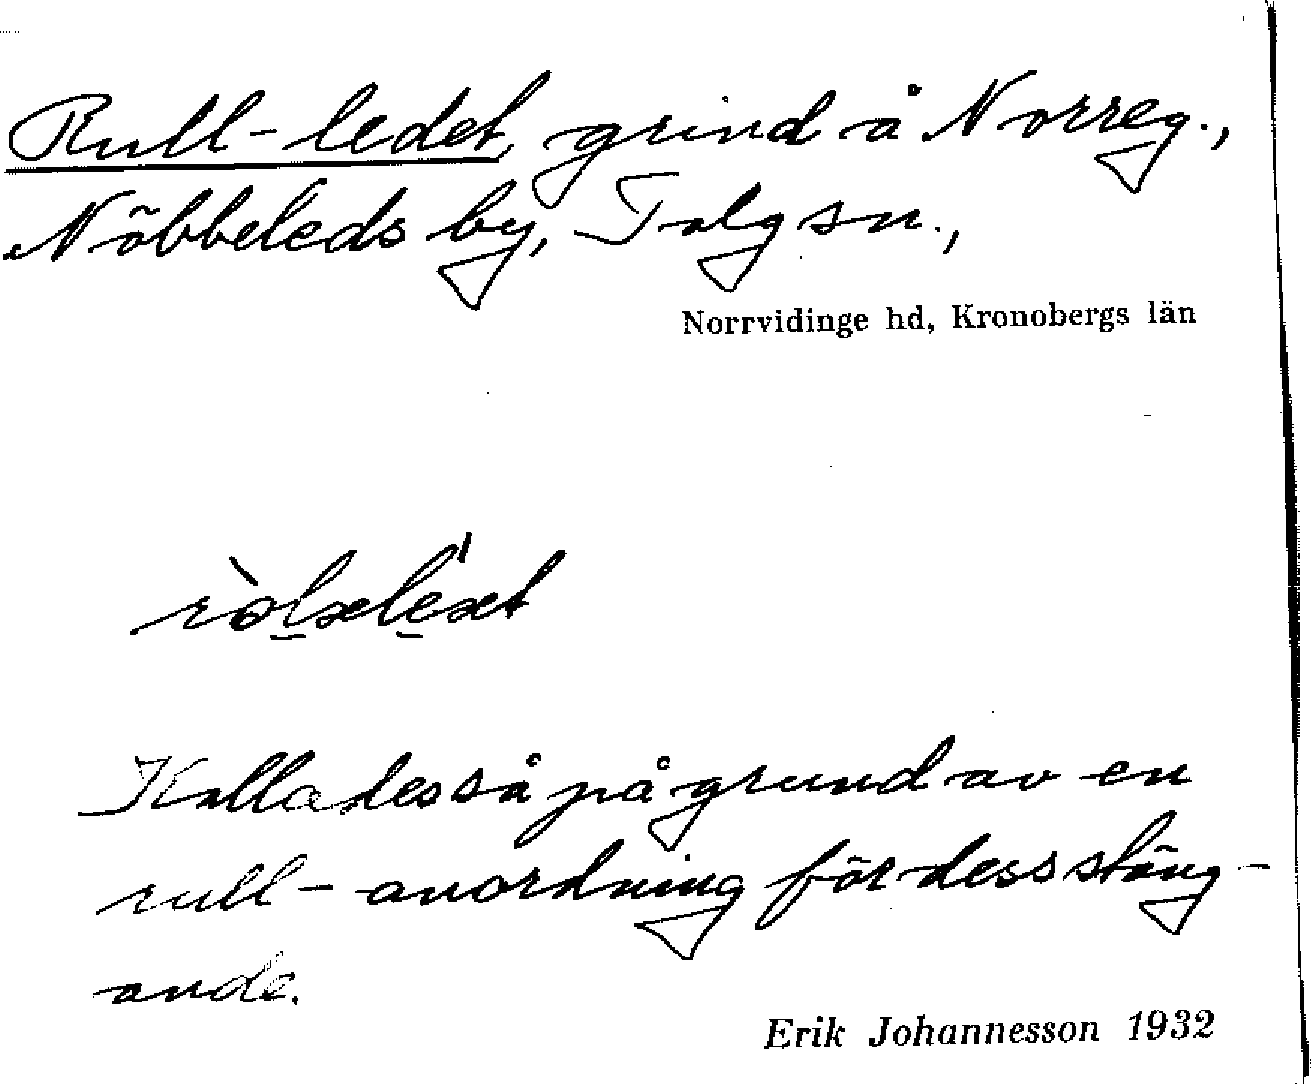 Rull-ledet, grind å Norreg.,
Nöbbeleds by, Tolg sn.,
Norrvidinge hd, Kronobergs län
Kallades så på grund av en
rull-anordning för dess stäng-
ande.
Erik Johannesson 1932